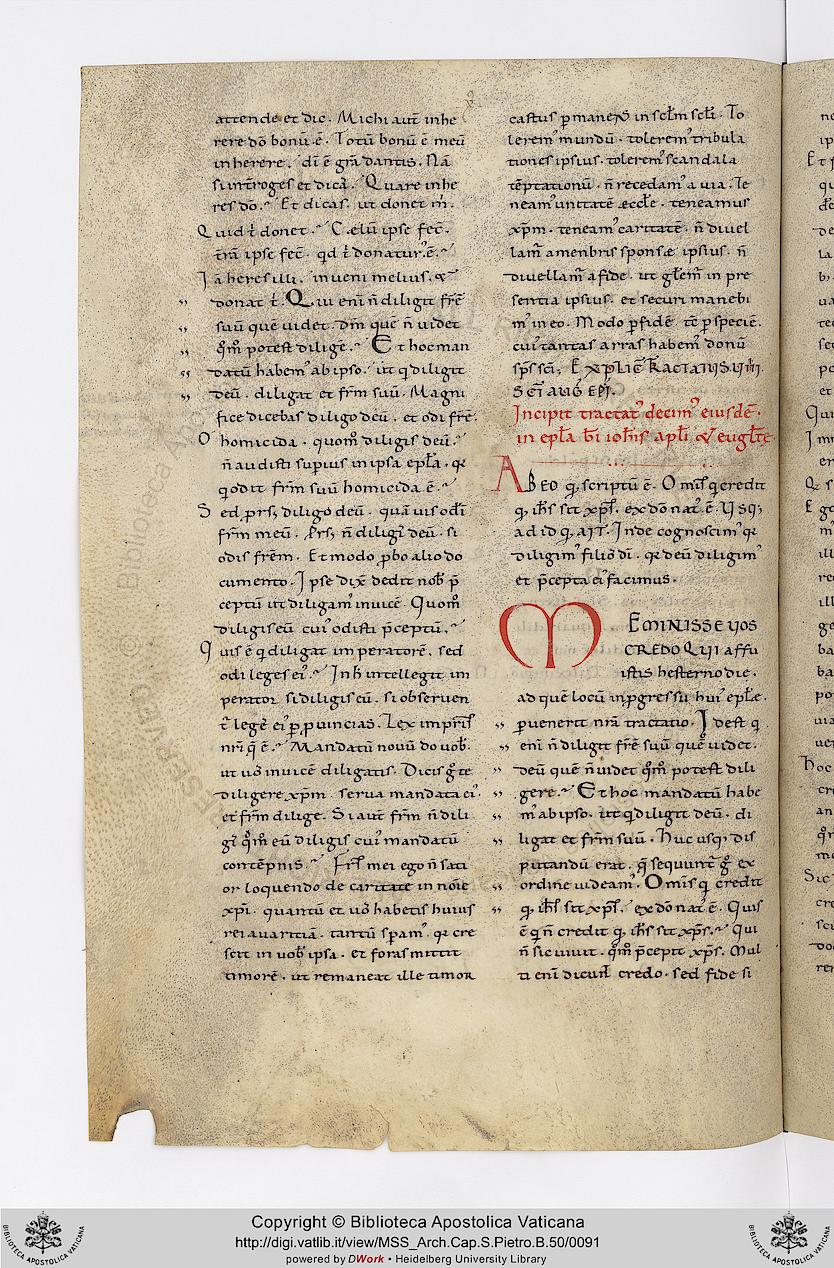 attende et dic. Michi aut̄ inhe
rere dō bonū ē. Totū bonū ē meū
inherere. dī ē gr̄a dantis. Nā
si int̄roges et dicā. Quare inhe
res dō. Et dicas. ut donet m̄.
Quid t̄ donet. Cælū ipse fec̄.
trā ipse fec̄. qd t̄ donatur' ē.
Iā heres illi. inveni melius. &
donat t̄. Qui enī n̄ diligit fr̄ē
suū quē uidet. dm̄ quē n̄ uidet
qm̄ potest dilige. Et hoc man
datū habem' ab ipso. ut q diligit
deū. diligat et fr̄m suū. Magni
fice dicebas diligo deū. et odi fr̄ē.
O homicida. quom̄ diligis deū.
n̄ audisti superius in ipsa epl̄a. q̄
qi odit fr̄m suū homicida ē.
Sed prs̄. diligo deū. quāuis odī
fr̄m meū. Prs̄. n̄ diligi' deū. si
odis fr̄em. Et modo pbo alio do
cumento. Ipse dix̄ dedit nob' p̄
ceptū ut diligam' inuicē. Quom̄
diligis eū cui' odisti p̄ceptū.
Quis ē q diligat imperatorē. sed
odi leges ei'. In h̄ intellegit im
perator si diligis eū. si obseruen
t̄ legē ei' p puincias. Lex impr̄is
nr̄i q̄ ē. Mandatū nouū do uob'.
ut uos inuicē diligatis. Dicis g̊ te
diligere xp̄m. serua mandata ei'.
et fr̄m dilige. Si aut̄ fr̄m n̄ dili
gi' qm̄ eū diligis cui' mandatū
contēpnis. Fr̄s mei ego n̄ sati
or loquendo de caritate in noīe
xp̄i. quantū et uos habetis huius
rei auaritiā. tantū speram'. q̄ cre
scit in uob' ipsa. et foras mittit
timorē. ut remaneat ille timor
castus pmanens in scl̄m scl̄i. To
lerem' mundū. tolerem' tribula
tiones ipsius. tolerem' scandala
tēptationū. n̄ recedam' a uia. Te
neamus unitatē eccl̄e. teneamus
xp̄m. teneam' caritatē. n̄ diuel
lam' a menbris sponsæ ipsius. n̄
diuellam' a fide. ut gl̄em' in pre
sentia ipsius. et securi manebi
m' in eo. Modo p fidē. tc̄ p speciē.
cui' tantas arras habem' donū
sp̄s sc̄i. EXPLIC̄ TRACTATUS VIIII.
SC̄I AUG EPĪ.
Incipit tractat' decim' eiusdē.
in epl̄a bī ioh̄is apl̄i & eugl̄te
AB EO q, scriptū ē. Omīs q credit
q, ih̄s sit xp̄s. ex dō nat' ē. Usq;
ad id q, ait. Inde cognoscim' q̄
diligim' filios dī. q̄ deū diligim'
et p̄cepta ei' facimus.
MEMINISSE VOS
CREDO QUI affu
istis hesterno die.
ad quē locū in pgressu hui' epl̄e.
puenerit nr̄a tractatio. Id est q
enī n̄ diligit fr̄ē suū quē uidet.
deū quē n̄ uidet qm̄ potest dili
gere. Et hoc mandatū habe
m' ab ipso. ut q diligit deū. di
ligat et fr̄m suū. Huc usq; dis
putandū erat. q̄ sequunt̄ g̊ ex
ordine uideam'. Omīs q credit
q, ih̄s sit xp̄s. ex dō nat' ē. Quis
ē q n̄ credit q, ih̄s sit xp̄s. Qui
n̄ sic uiuit. qm̄ p̄cepit xp̄s. Mul
ti enī dicunt̄ credo. sed fide si
Copyright © Biblioteca Apostolica Vaticana
http://digi.vatlib.it/view/MSS_Arch.Cap.S.Pietro.B.50/0091
powered by DWork • Heidelberg University Library
BIBLIOTECA APOSTOLICA VATICANA
BIBLIOTECA APOSTOLICA VATICANA